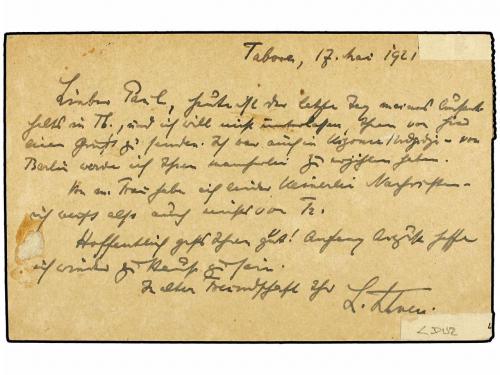 Tabora, 17. Mai 1921
Lieber Paul, heute ist der letzte Tag meines Aufent-
halts in Tb., und ich will nicht unterlassen, Ihnen von hier
einen Gruß zu senden. Ich war auch in Kigoma/Udjidji – von
Berlin werde ich Ihnen mancherlei zu erzählen haben.
Von m. Frau habe ich leider keinerlei Nachrichten –
ich weiß also auch nichts von
Hoffentlich geht's Ihnen gut! Anfang August hoffe
ich wieder zu Hause zu sein.
In alter Freundschaft Ihr
L.